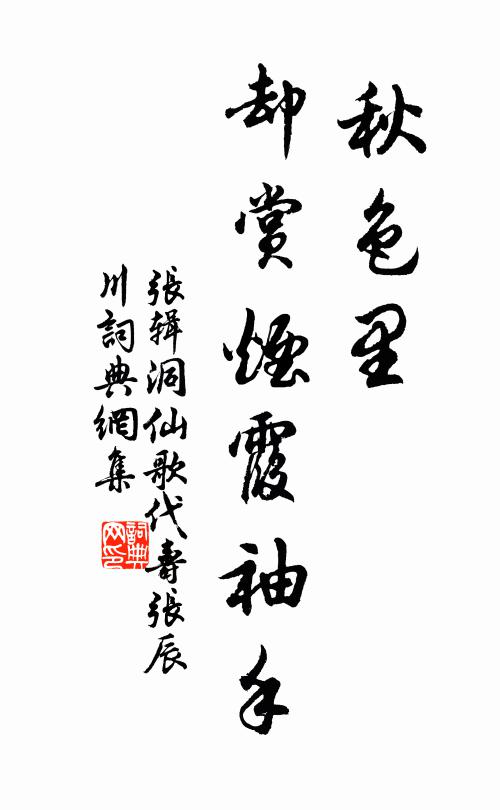 秋色里
却賞煙霞袖手
張辑洞仙歌代壽張辰
川詞典網集
詞典
网印